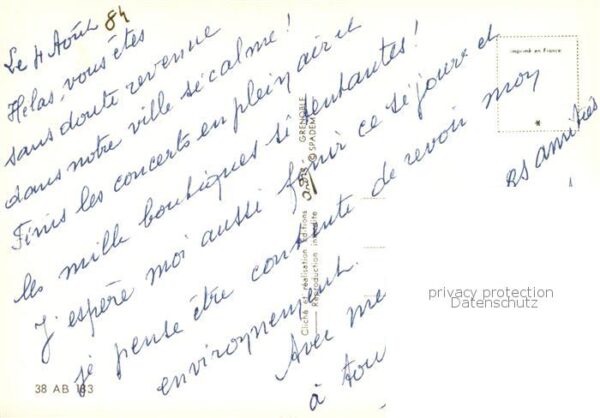 Le 4 Août 84
Helas, vous êtes
sans doute revenue
dans notre ville si calme !
Finis les concerts en plein air et
les mille boutiques si tentantes !
J'espère moi aussi finir ce séjour et
je pense être contente de revoir mon
environnement.
Avec me
es amitiés
à tou
imprimé en France
GRENOBLE
© SPADEM
Cliché et réalisation éditions
Reproduction interdite
38 AB 183
privacy protection
Datenschutz